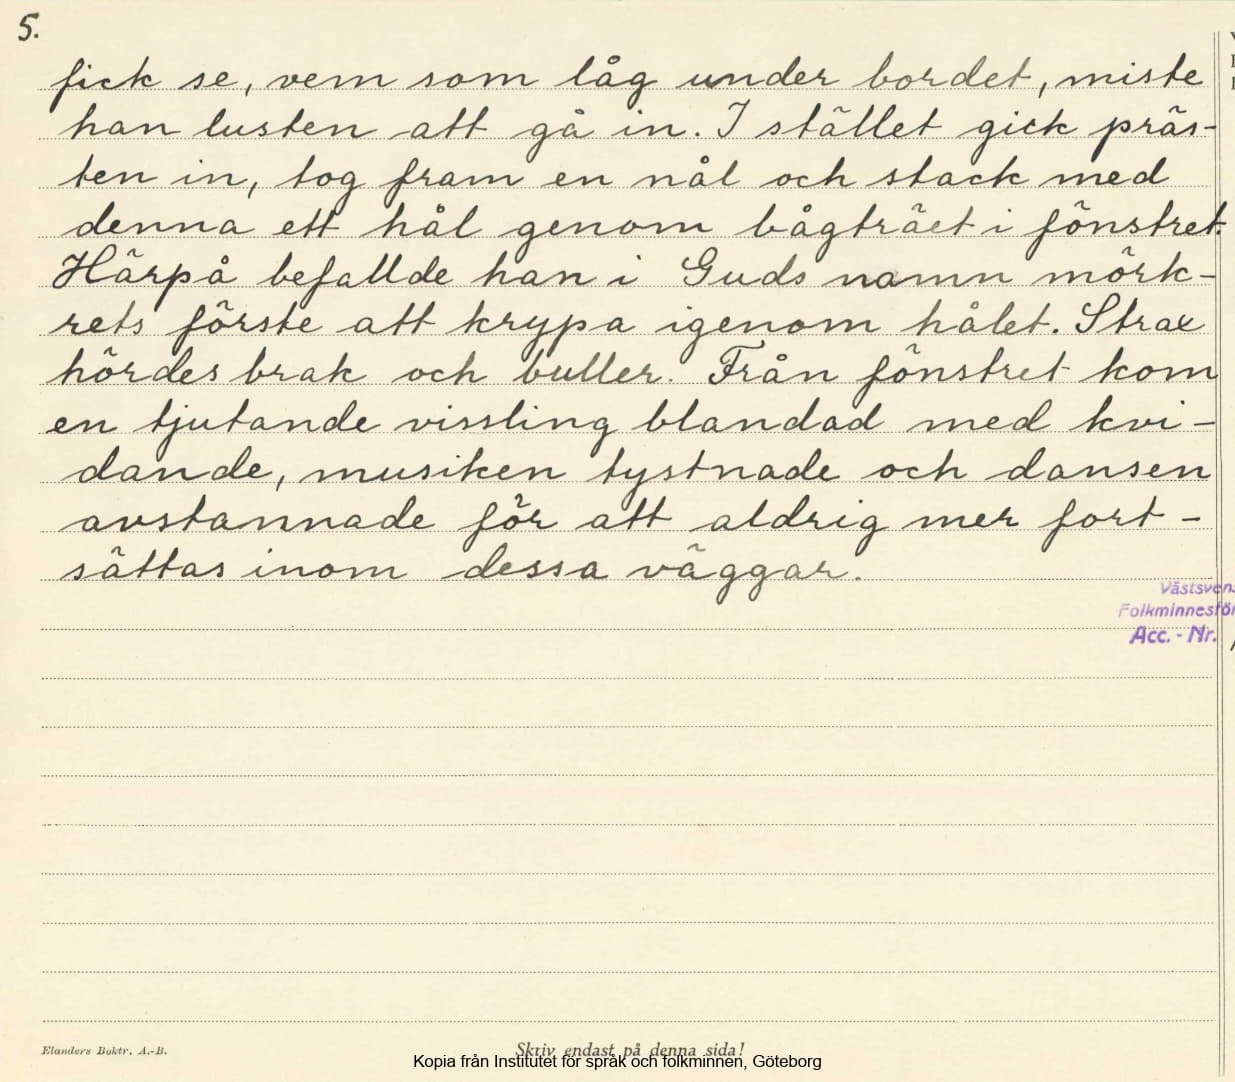 5.
fick se, vem som låg under bordet, miste
han lusten att gå in. I stället gick präs-
ten in, tog fram en nål och stack med
denna ett hål genom bågträet i fönstret.
Härpå befallde han i Guds namn mörk-
rets förste att krypa igenom hålet. Strax
hördes brak och buller. Från fönstret kom
en tjutande vissling blandad med kvi-
dande, musiken tystnade och dansen
avstannade för att aldrig mer fort-
sättas inom dessa väggar.
Västsvens
Folkminnesför
Acc. - Nr.
Elanders Boktr. A.-B.
Skriv endast på denna sida!
Kopia från Institutet för språk och folkminnen, Göteborg